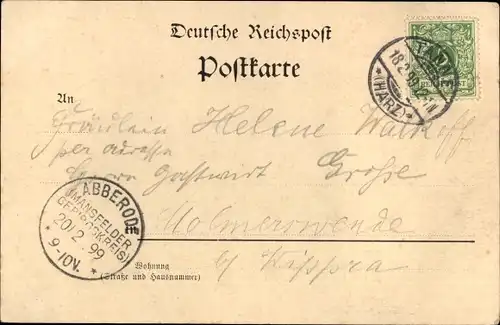 Deutsche Reichspost
Postkarte
18.2.99
*(HARZ)*
An
Fräulein Helene Walkoff
per adresse
Herrn Gastwirt Große
Molmerswende
b/ Wippra
ABBERODE
(MANSFELDER
GEBIRGSKREIS)
20/2 99
* 9-10V. *
Wohnung
(Straße und Hausnummer)